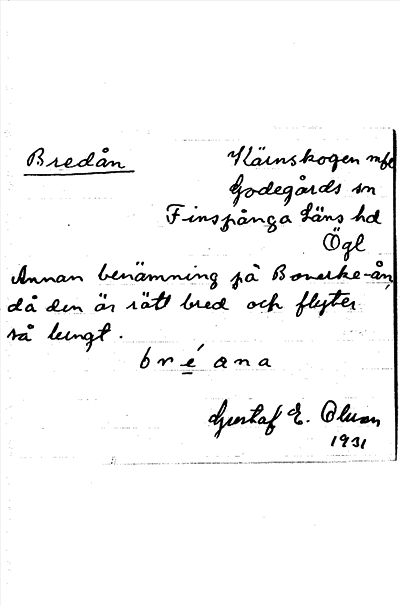 Bredån
Kärnskogen mfl
Godegårds sn
Finspånga Läns hd
Ögl
Annan benämning på Bonerke-ån,
då den är rätt bred och flyter
så lungt.
bréana
Gustaf E. Olsson
1931